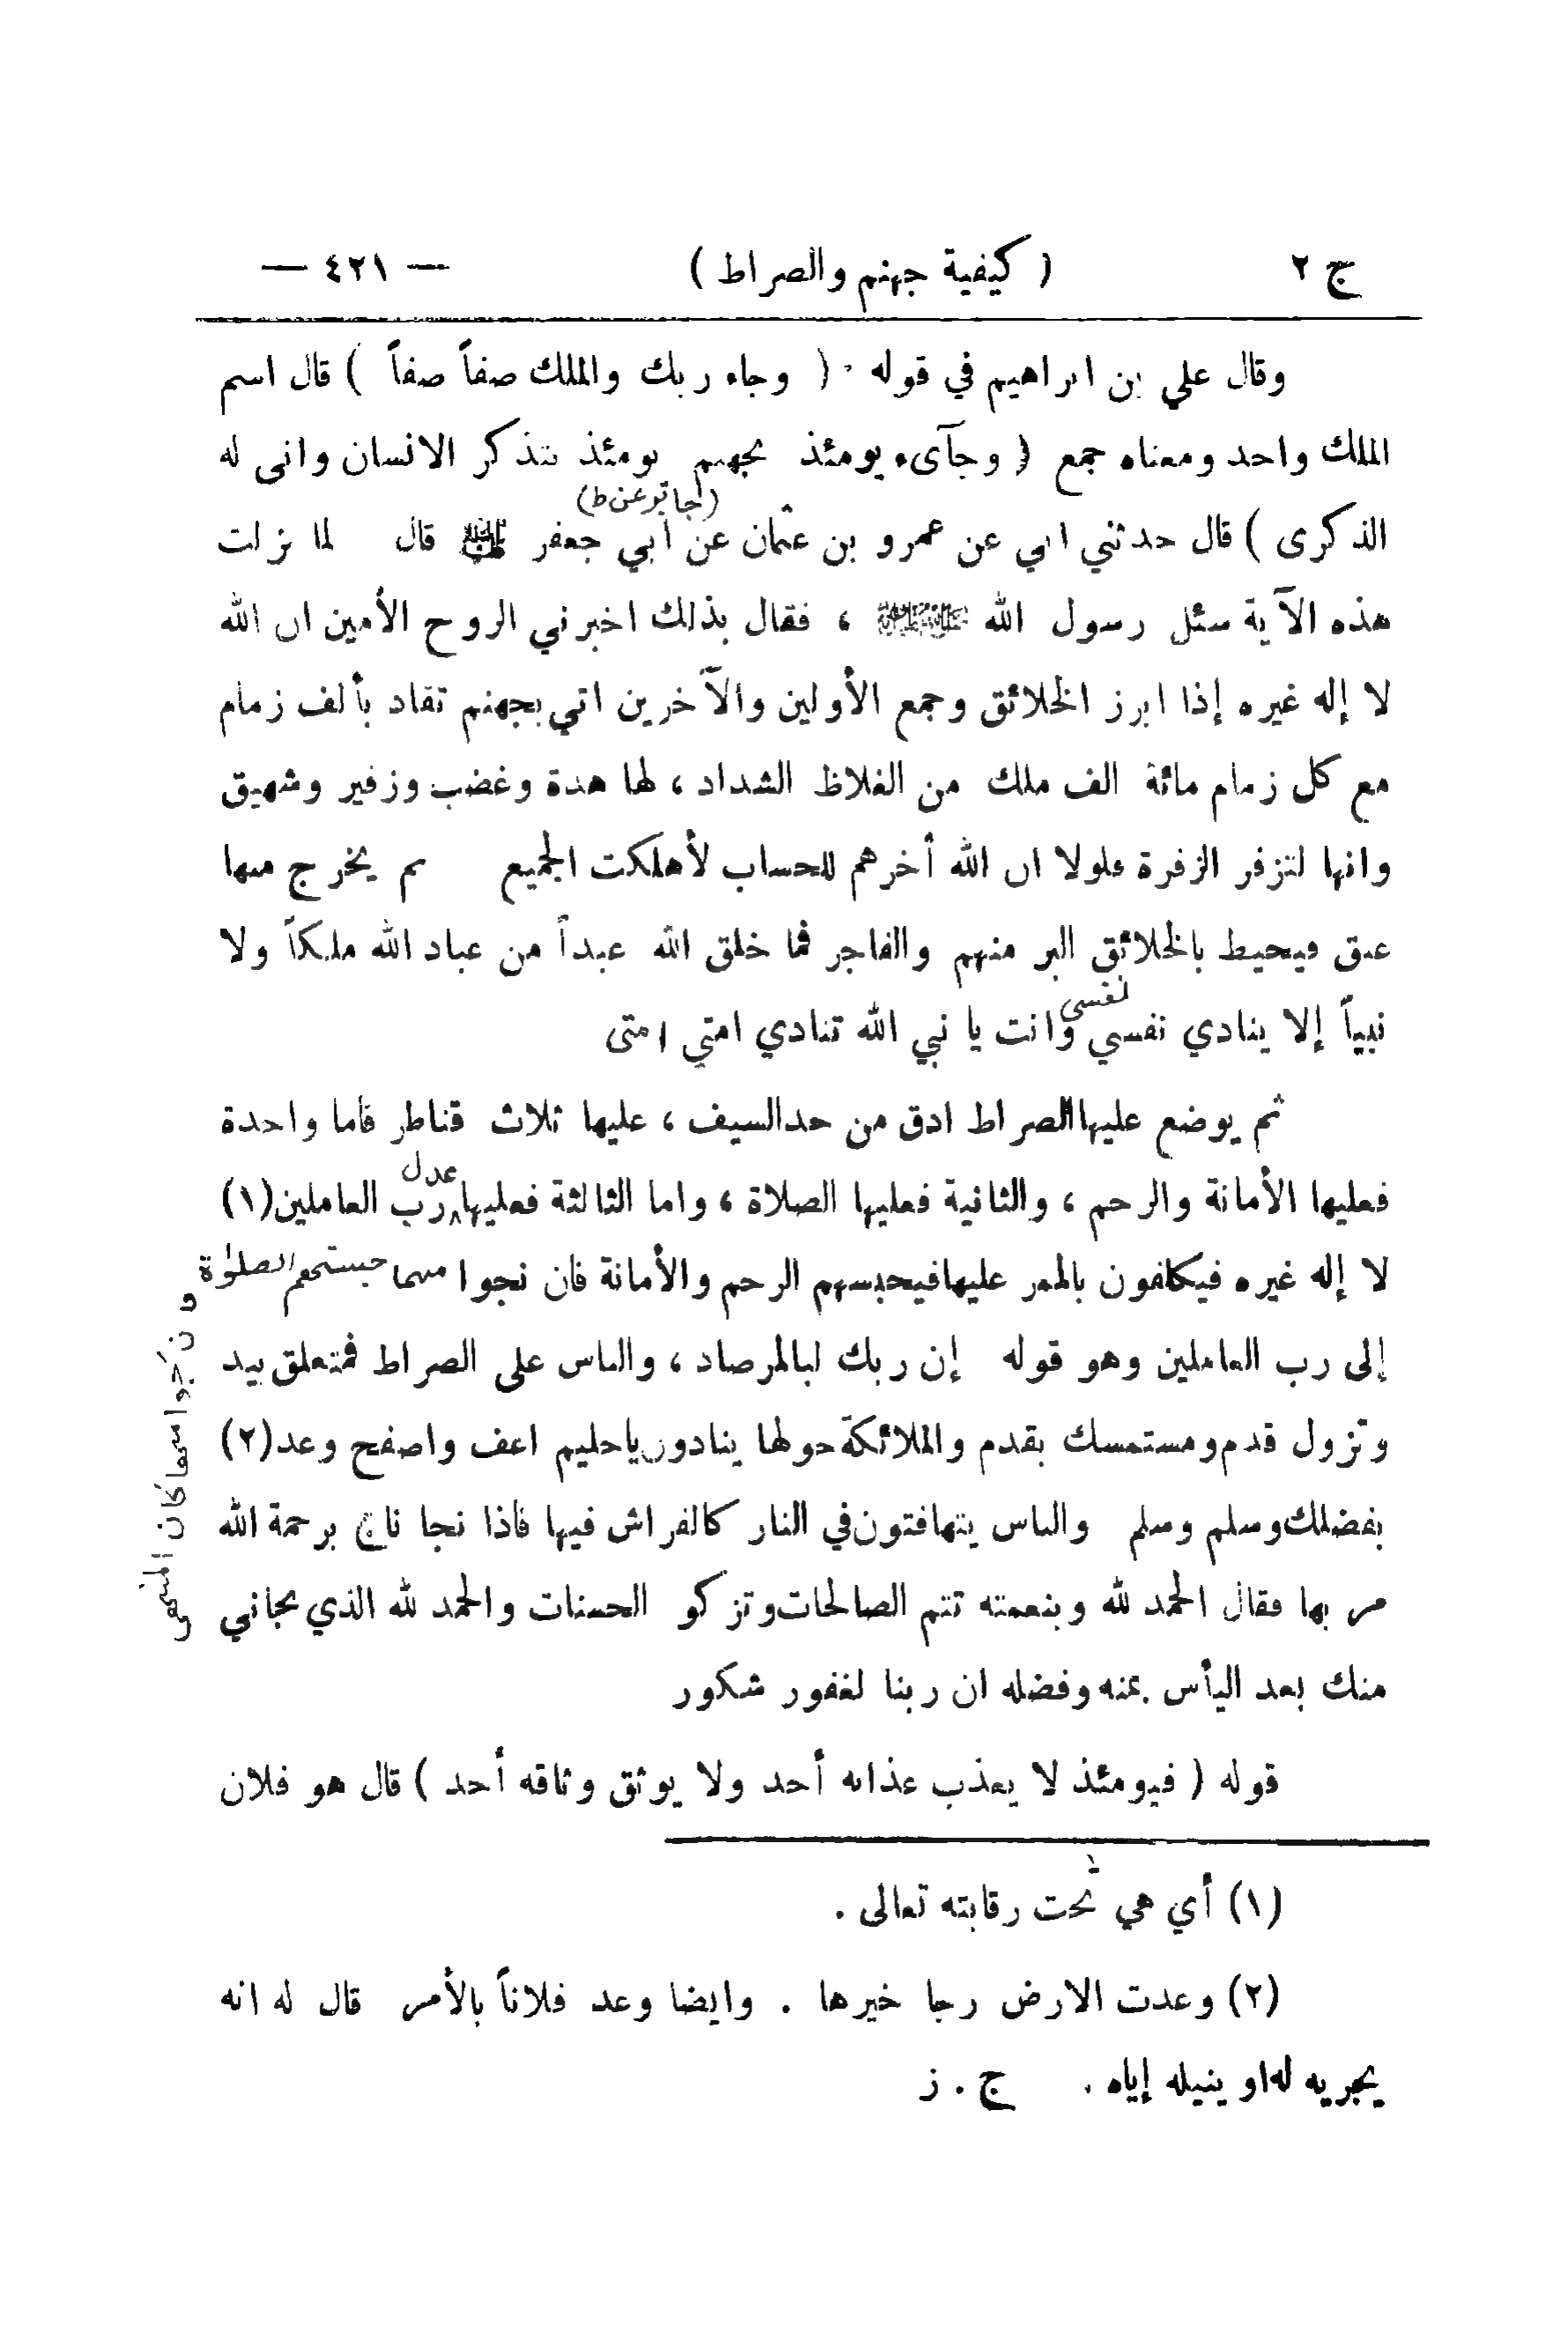 ج ٢ ( كيفية جهنم والصراط ) — ٤٢١ —
وقال علي بن ابراهيم في قوله ( وجاء ربك والملك صفاً صفاً ) قال اسم
الملك واحد ومعناه جمع ( وجآىء يومئذ بجهنم يومئذ يتذكر الانسان وانى له
(جابر عن ط)
الذكرى ) قال حدثني ابي عن عمرو بن عثمان عن أبي جعفر قال لما نزلت
هذه الآية سئل رسول الله ، فقال بذلك اخبرني الروح الأمين ان الله
لا إله غيره إذا ابرز الخلائق وجمع الأولين والآخرين اتي بجهنم تقاد بألف زمام
مع كل زمام مائة الف ملك من الغلاظ الشداد ، لها هدة وغضب وزفير وشهيق
وانها لتزفر الزفرة فلولا ان الله أخرهم للحساب لأهلكت الجميع ثم يخرج منها
عنق فيحيط بالخلائق البر منهم والفاجر فما خلق الله عبداً من عباد الله ملكاً ولا
نفسي
نبياً إلا ينادي نفسي وانت يا نبي الله تنادي امتي امتى
ثم يوضع عليها الصراط ادق من حد السيف ، عليها ثلاث قناطر فاما واحدة
عدل
فعليها الأمانة والرحم ، والثانية فعليها الصلاة ، واما الثالثة فعليها رب العاملين (١)
لا إله غيره فيكلفون بالممر عليها فيحبسهم الرحم والأمانة فان نجوا منهما حبستهم الصلوٰة
و ن نجوا منها كان المنتهى
إلى رب العاملين وهو قوله إن ربك لبالمرصاد ، والناس على الصراط فمتعلق بيد
وتزول قدم ومستمسك بقدم والملائكة حولها ينادون يا حليم اعف واصفح وعد (٢)
بفضلك وسلم وسلم والناس يتهافتون في النار كالفراش فيها فاذا نجا ناج برحمة الله
مر بها فقال الحمد لله وبنعمته تتم الصالحات وتزكو الحسنات والحمد لله الذي نجاني
منك بعد اليأس بمنه وفضله ان ربنا لغفور شكور
قوله ( فيومئذ لا يعذب عذابه أحد ولا يوثق وثاقه أحد ) قال هو فلان
(١) أي هي تحت رقابته تعالى .
(٢) وعدت الارض رجا خيرها . وايضا وعد فلاناً بالأمر قال له انه
يجريه له او ينيله إياه . ج . ز